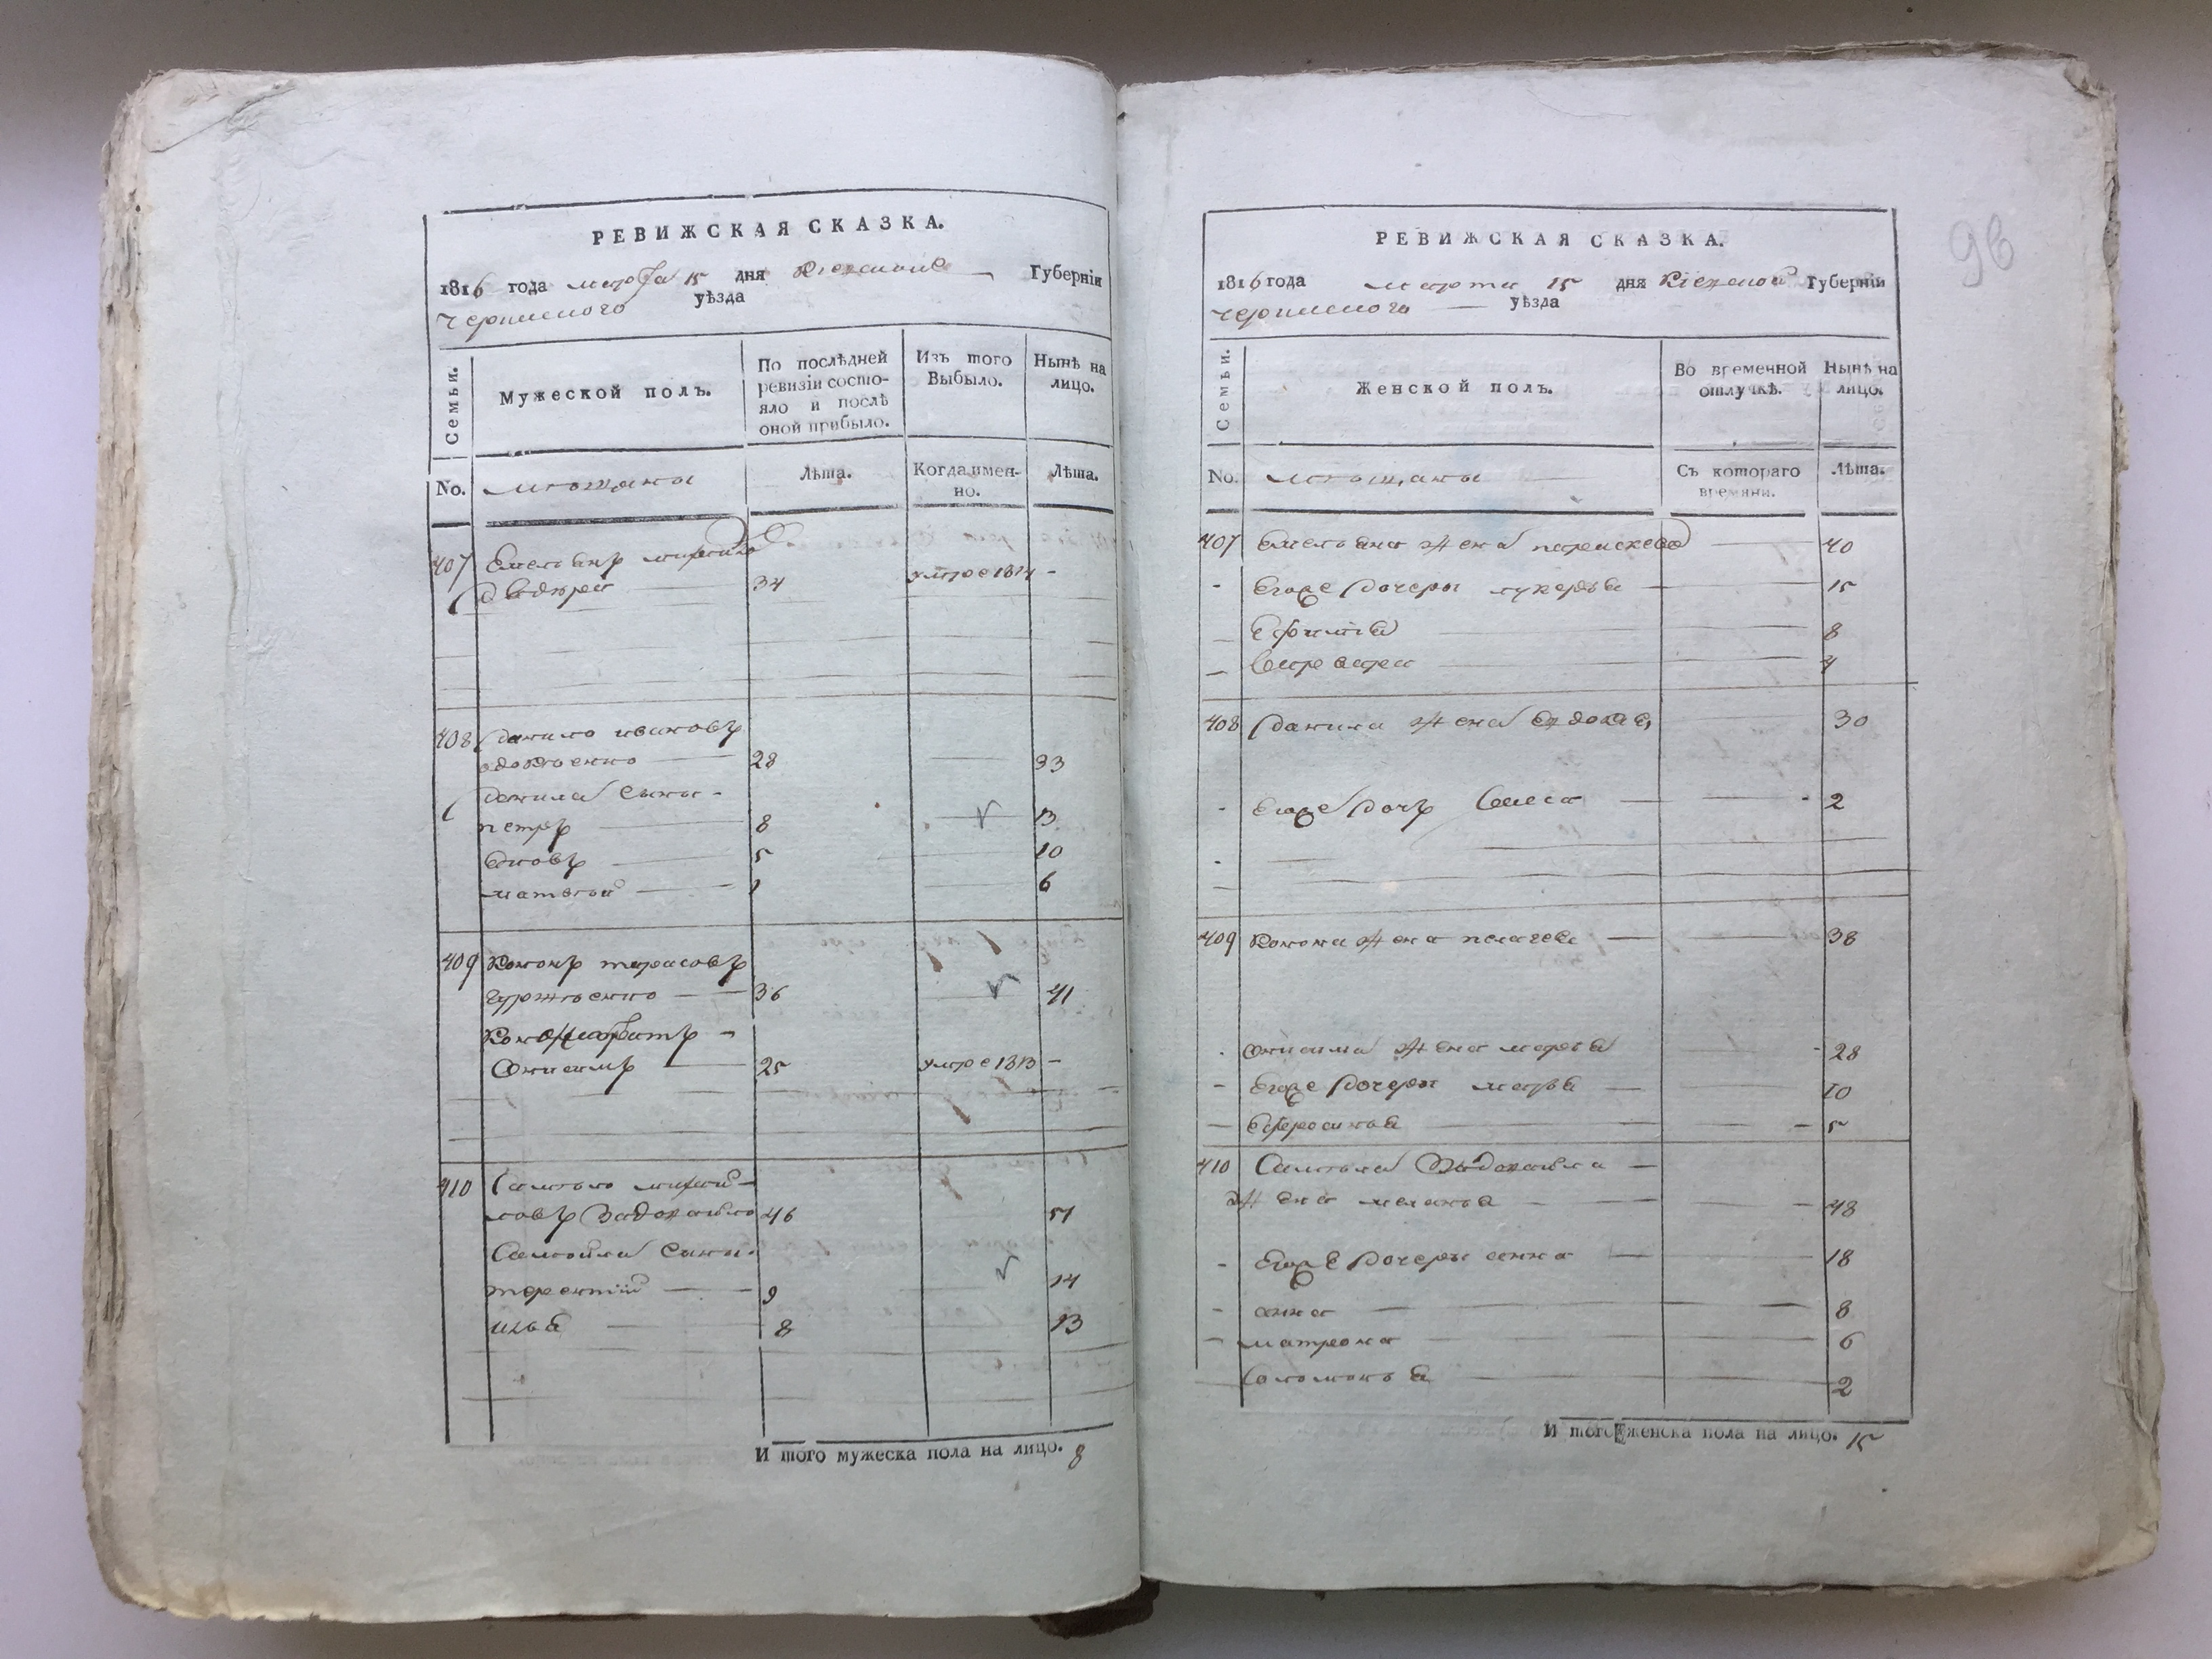 РЕВИЖСКАЯ СКАЗКА.
1816 года марта 15 дня Киевской Губерніи
уѣзда
Семьи.
Мужеской полъ.
По послѣдней
ревизіи состо-
яло и послѣ
оной прибыло.
Изъ того
Выбыло.
Нынѣ на
лицо.
No. мѣщаны
Лѣта.
Когда имен-
но.
Лѣта.
407 Емельянъ
34 умре 1814 -
408 Данило ивановъ
28 33
Данила сыны -
петръ 8 13
Яковъ 5 10
матвѣй 1 6
409 Кононъ тарасовъ
36 41
Конона братъ -
Онисимъ 25 умре 1813 -
410 Самойло михай-
ловъ 46 51
Самойла сыны.
терентий 9 14
илья 8 13
И того мужеска пола на лицо. 8
96
РЕВИЖСКАЯ СКАЗКА.
1816 года марта 15 дня Кіевской Губерніи
уѣзда
Семьи.
Женской полъ.
Во временной
отлучкѣ.
Нынѣ на
лицо.
No. мѣщаны
Съ котораго
времяни.
Лѣта.
407 Емельяна жена параскева 40
Егоже дочери лукерья 15
Ефимия 8
Варвара 4
408 Данила жена Евдокия 30
Егоже дочь 2
409 Конона жена пелагея 38
Онисима жена марья 28
Егоже дочери марья 10
Ефросинья 5
410 Самойла
жена меланья 48
Егоже дочери анна 18
анна 8
матрона 6
Соломонья 2
И того женска пола на лицо. 15